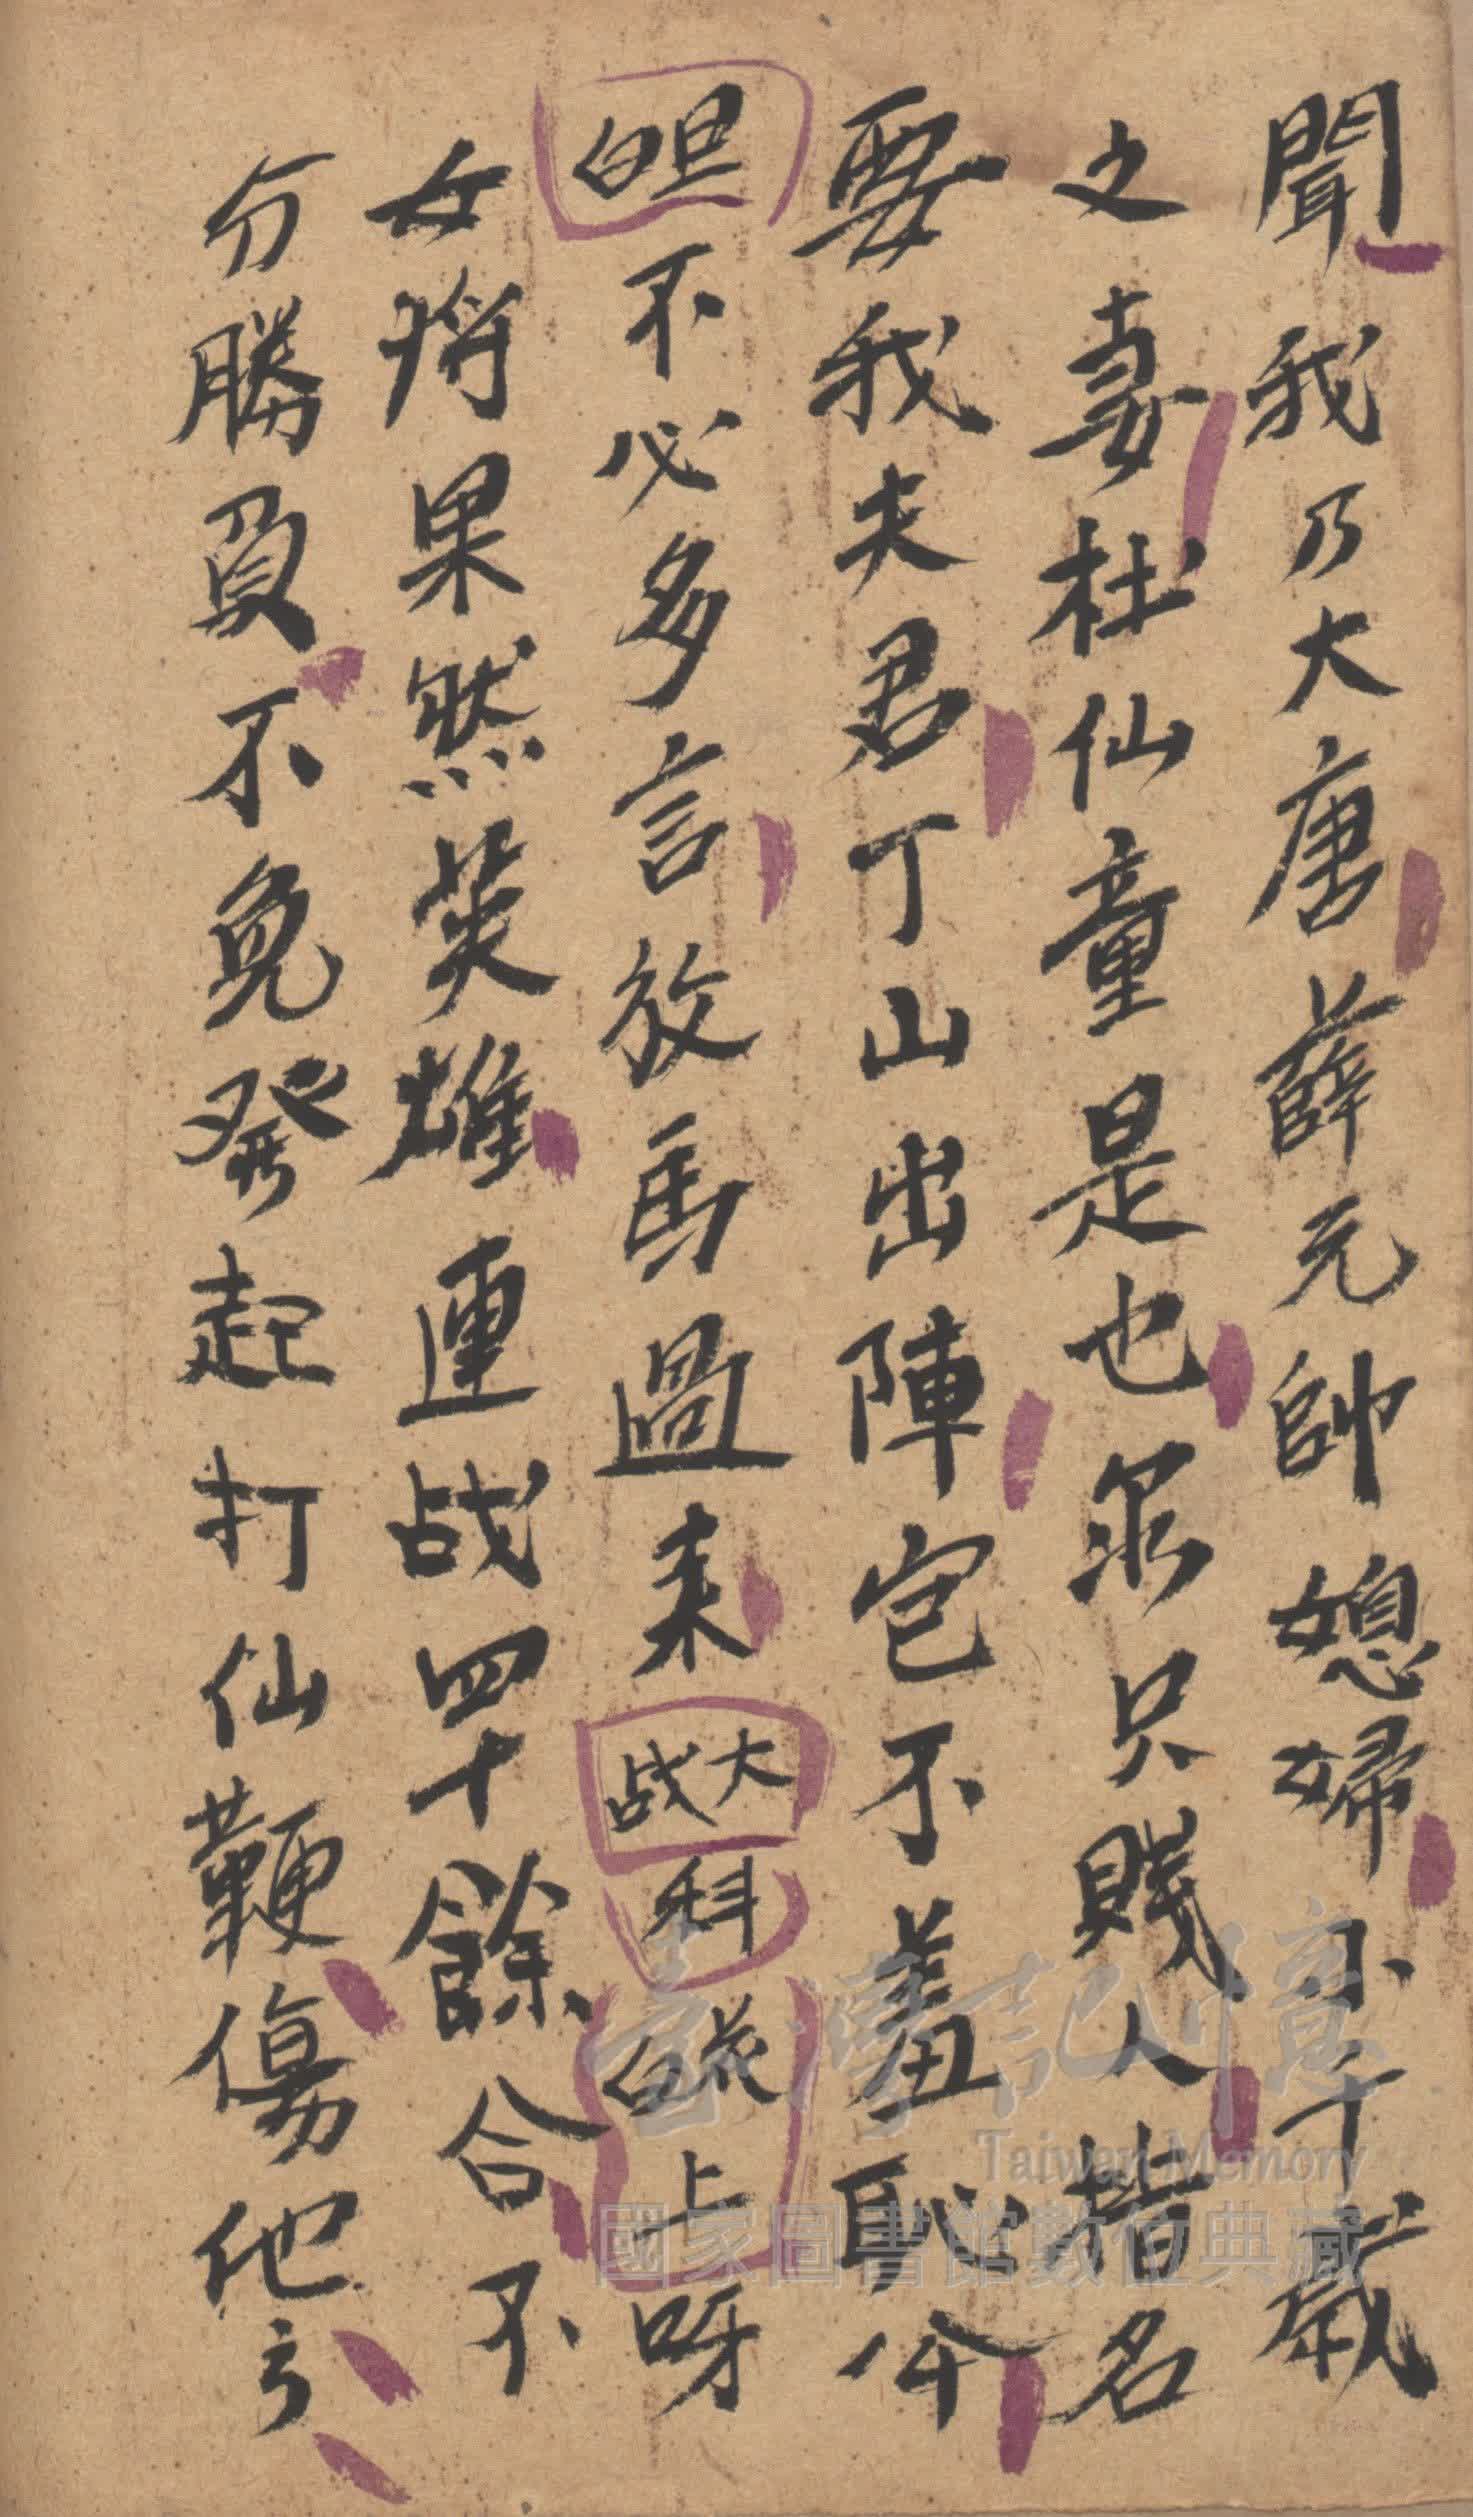 聞我乃大唐薛元帥媳婦小千歲
之妻杜仙童是也眾只賤人指名
要我夫君丁山出陣它不羞恥仒
白旦不必多言放馬過來大战科白並上呀
女將果然英雄連战四十餘合不
分勝負不免発起打仙鞭傷他亏
臺灣記憶
Taiwan Memory
國家圖書館數位典藏